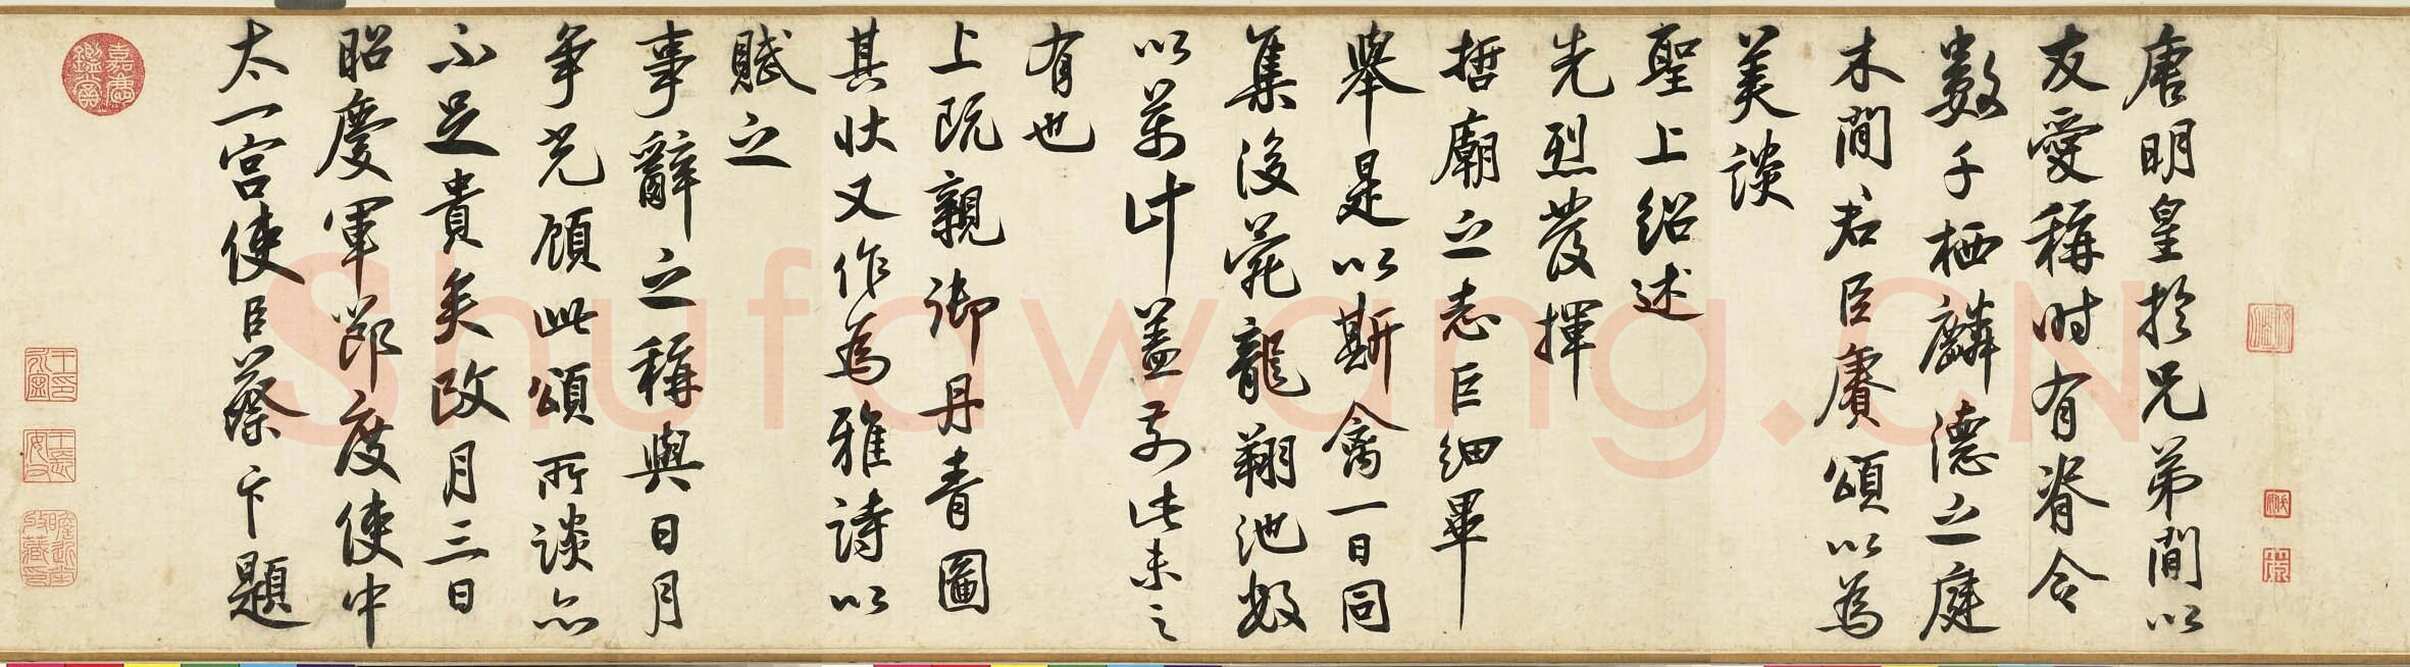 唐明皇於兄弟間以
友愛稱時有脊令
數千栖麟德之庭
木間君臣賡頌以為
美談
聖上紹述
先烈發揮
哲廟之志巨細畢
舉是以斯禽一日同
集後苑龍翔池數
以萬計蓋前此未之
有也
上既親御丹青圖
其狀又作為雅詩以
賦之
事辭之稱與日月
爭光顧此頌所談亦
不足貴矣政月三日
昭慶軍節度使中
太一宮使臣蔡卞題
嘉慶鑑賞
王印永寧
王長安父
瞻近堂收藏印
Shufawang.CN